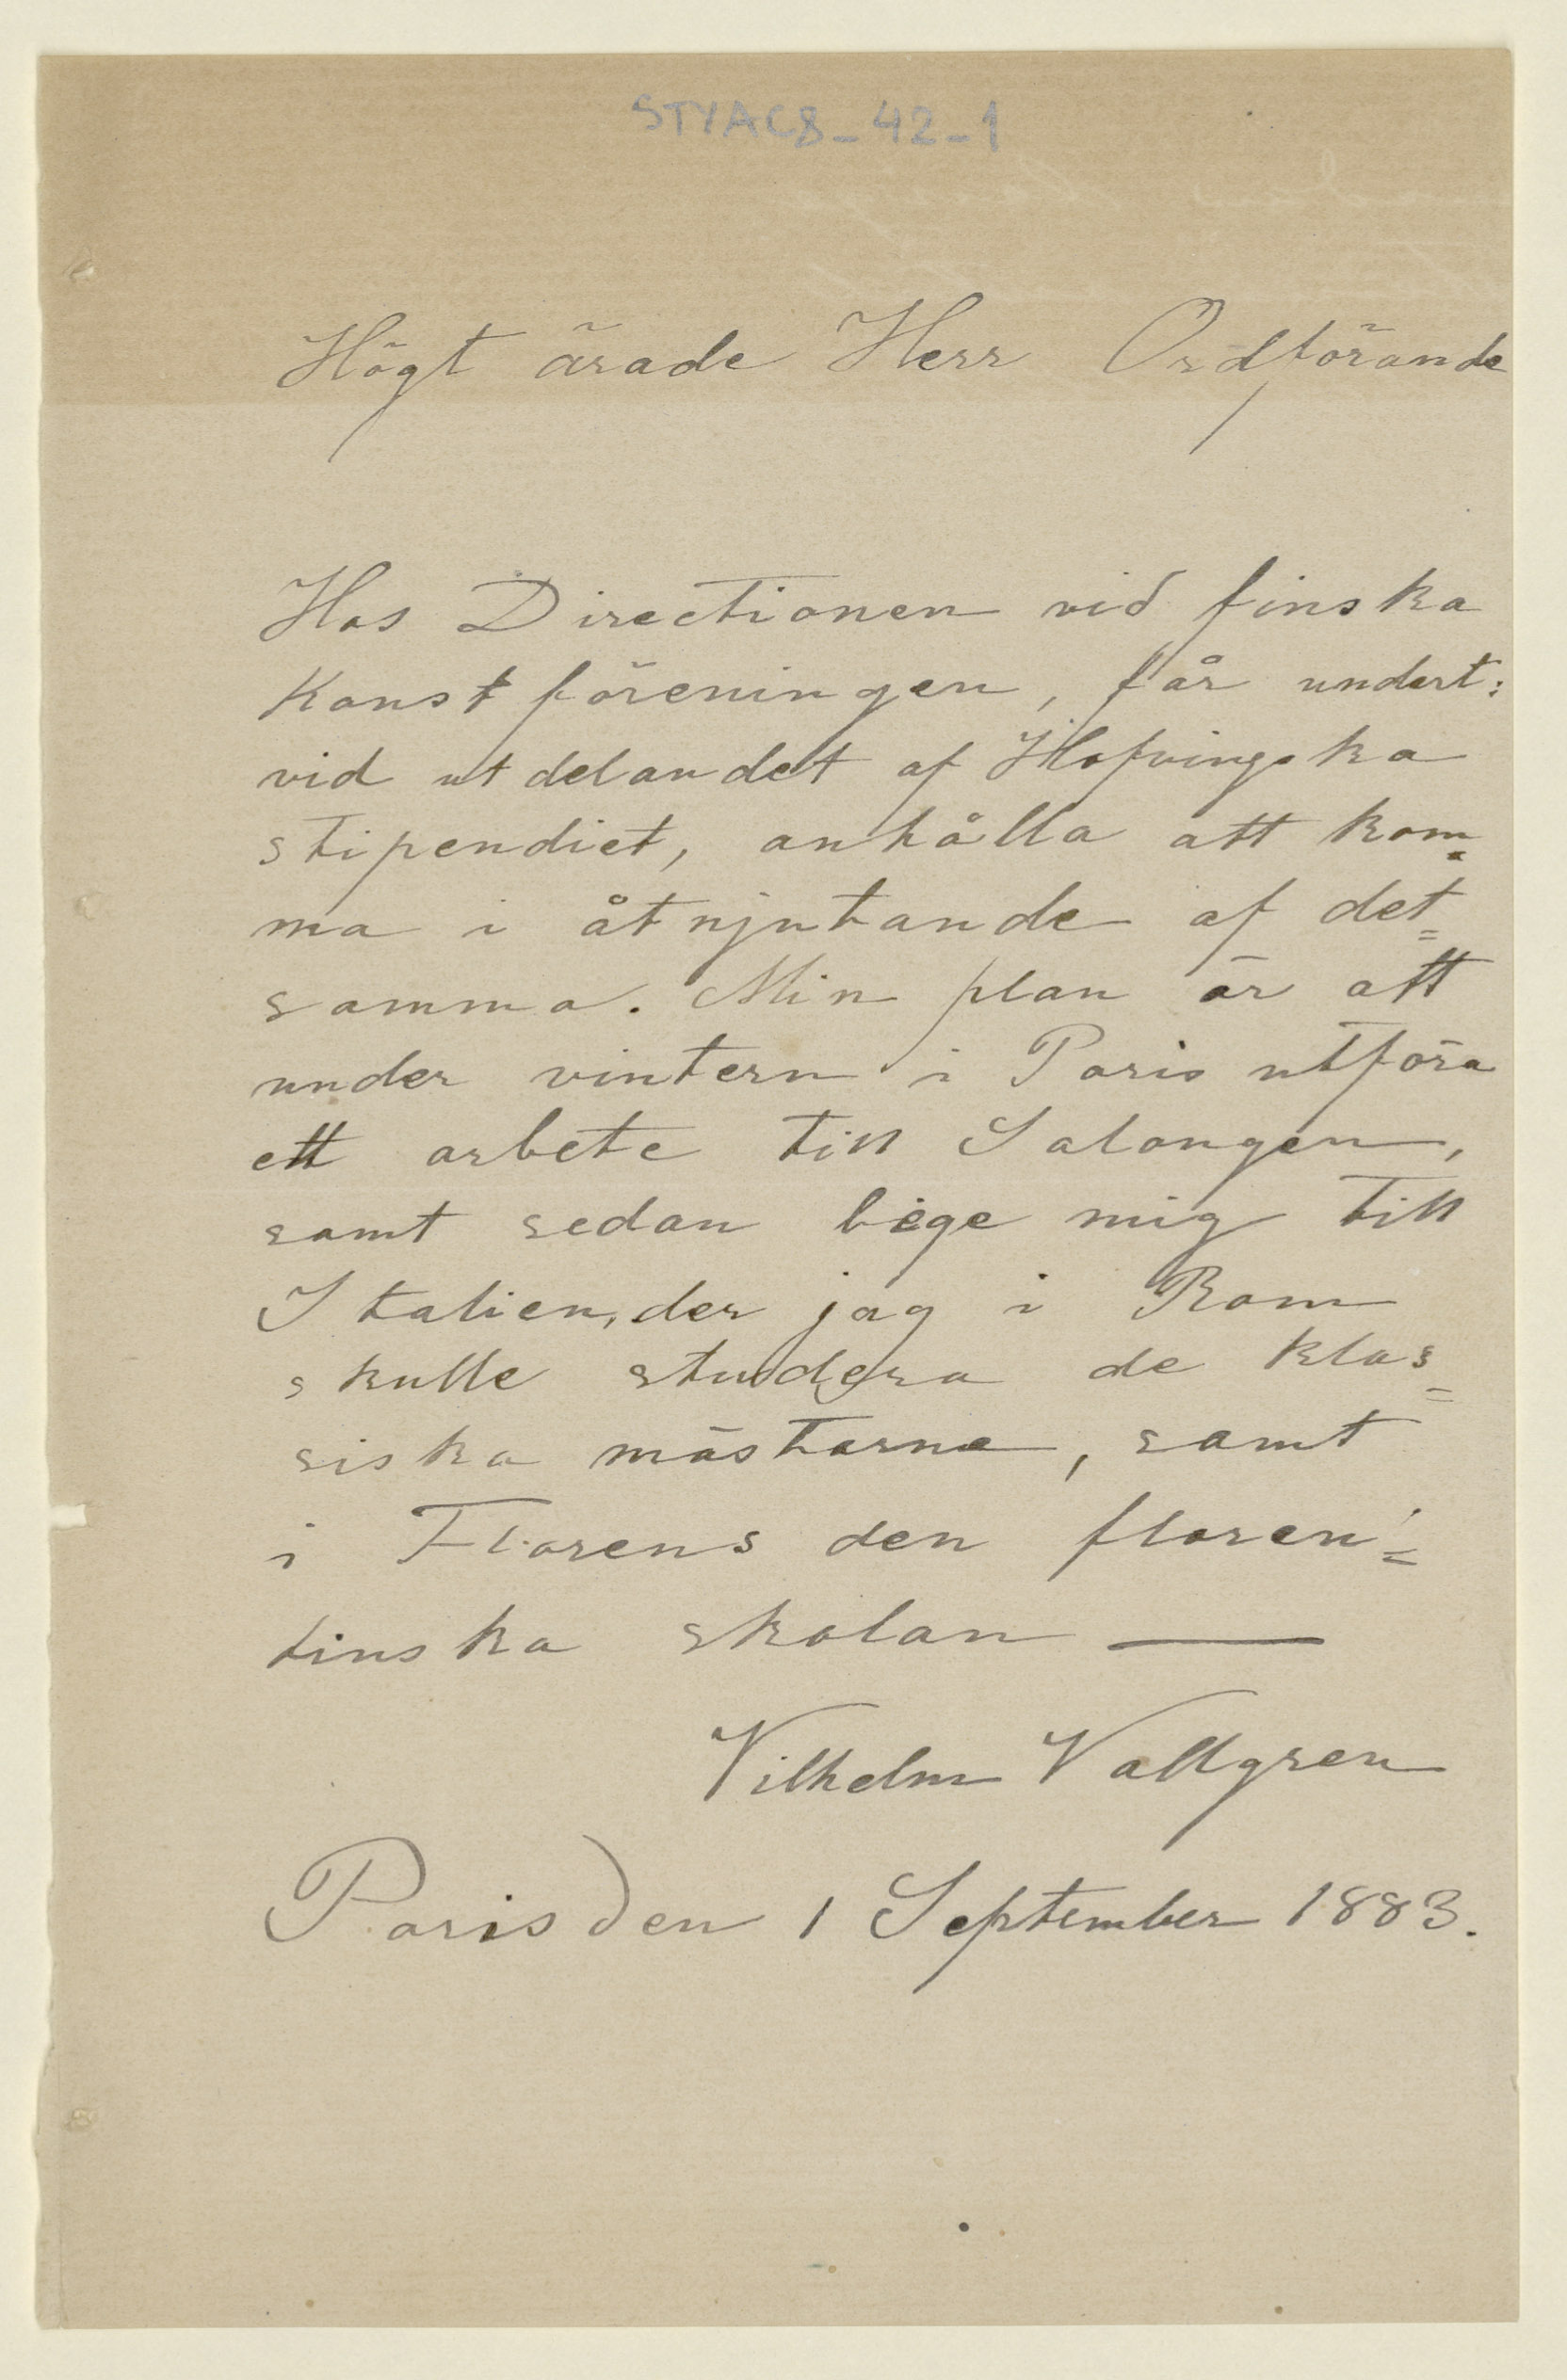 STYACS_42_1
Högt ärade Herr Ordförande
Hos Directionen vid finska
Konstföreningen, får undert:
vid utdelandet af Hofvingska
stipendiet, anhålla att kom=
ma i åtnjutande af det=
samma. Min plan är att
under vintern i Paris utföra
ett arbete till Salongen,
samt sedan bege mig till
Italien, der jag i Rom
skulle studera de klas=
siska mästarne, samt
i Florens den floren=
tinska skolan —
Vilhelm Vallgren
Paris den 1 September 1883.